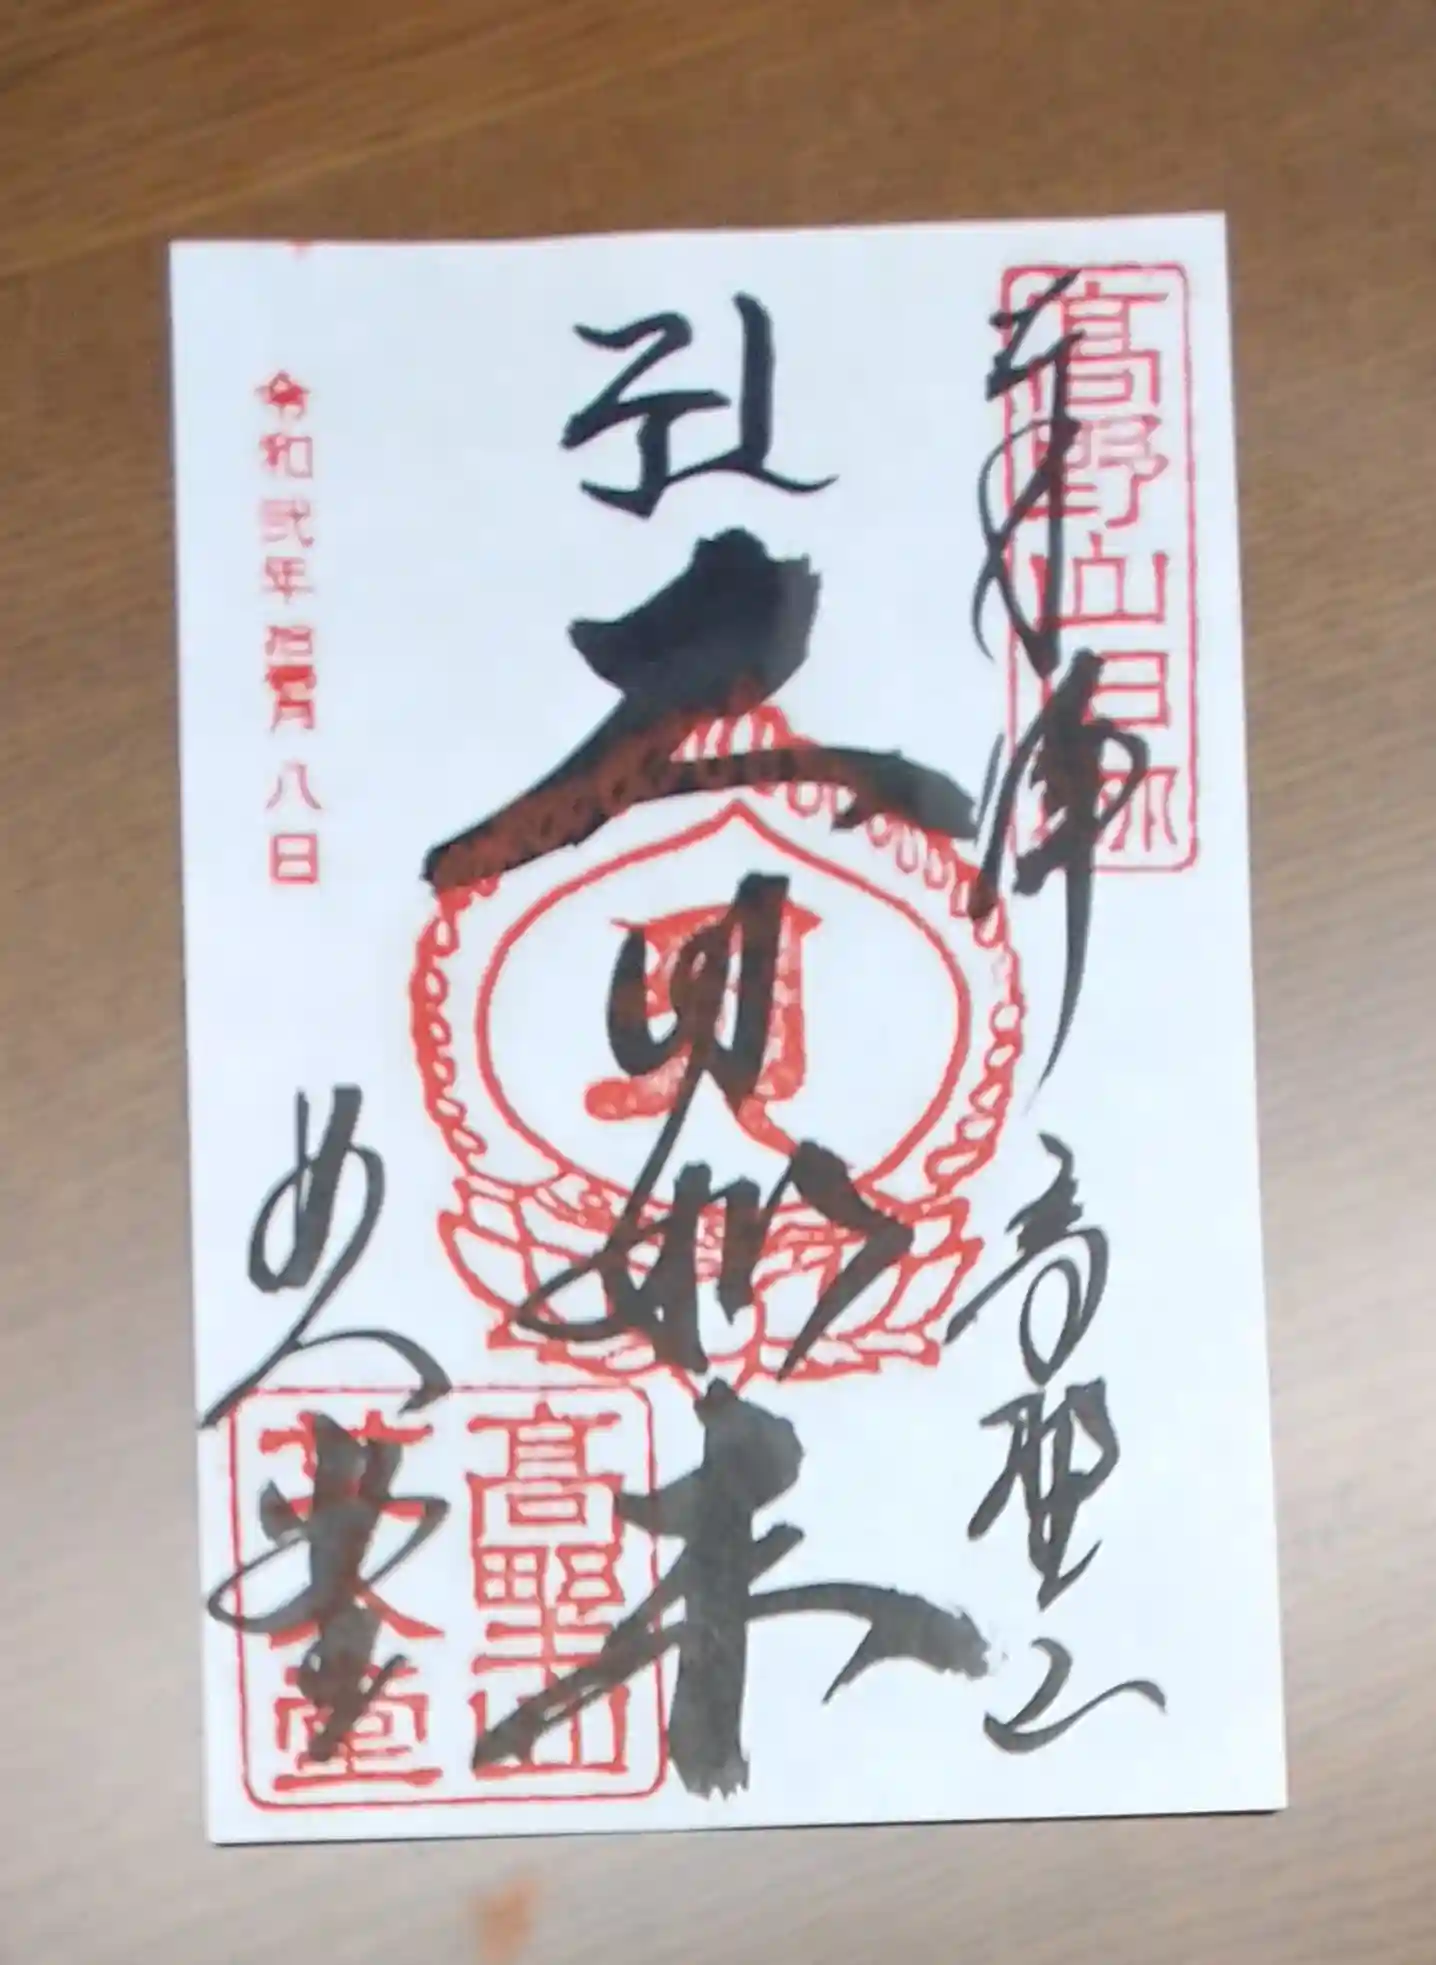 奉拝 高野山
高野山
大日如来
令和弐年
八日
女人堂
高野山
女人堂